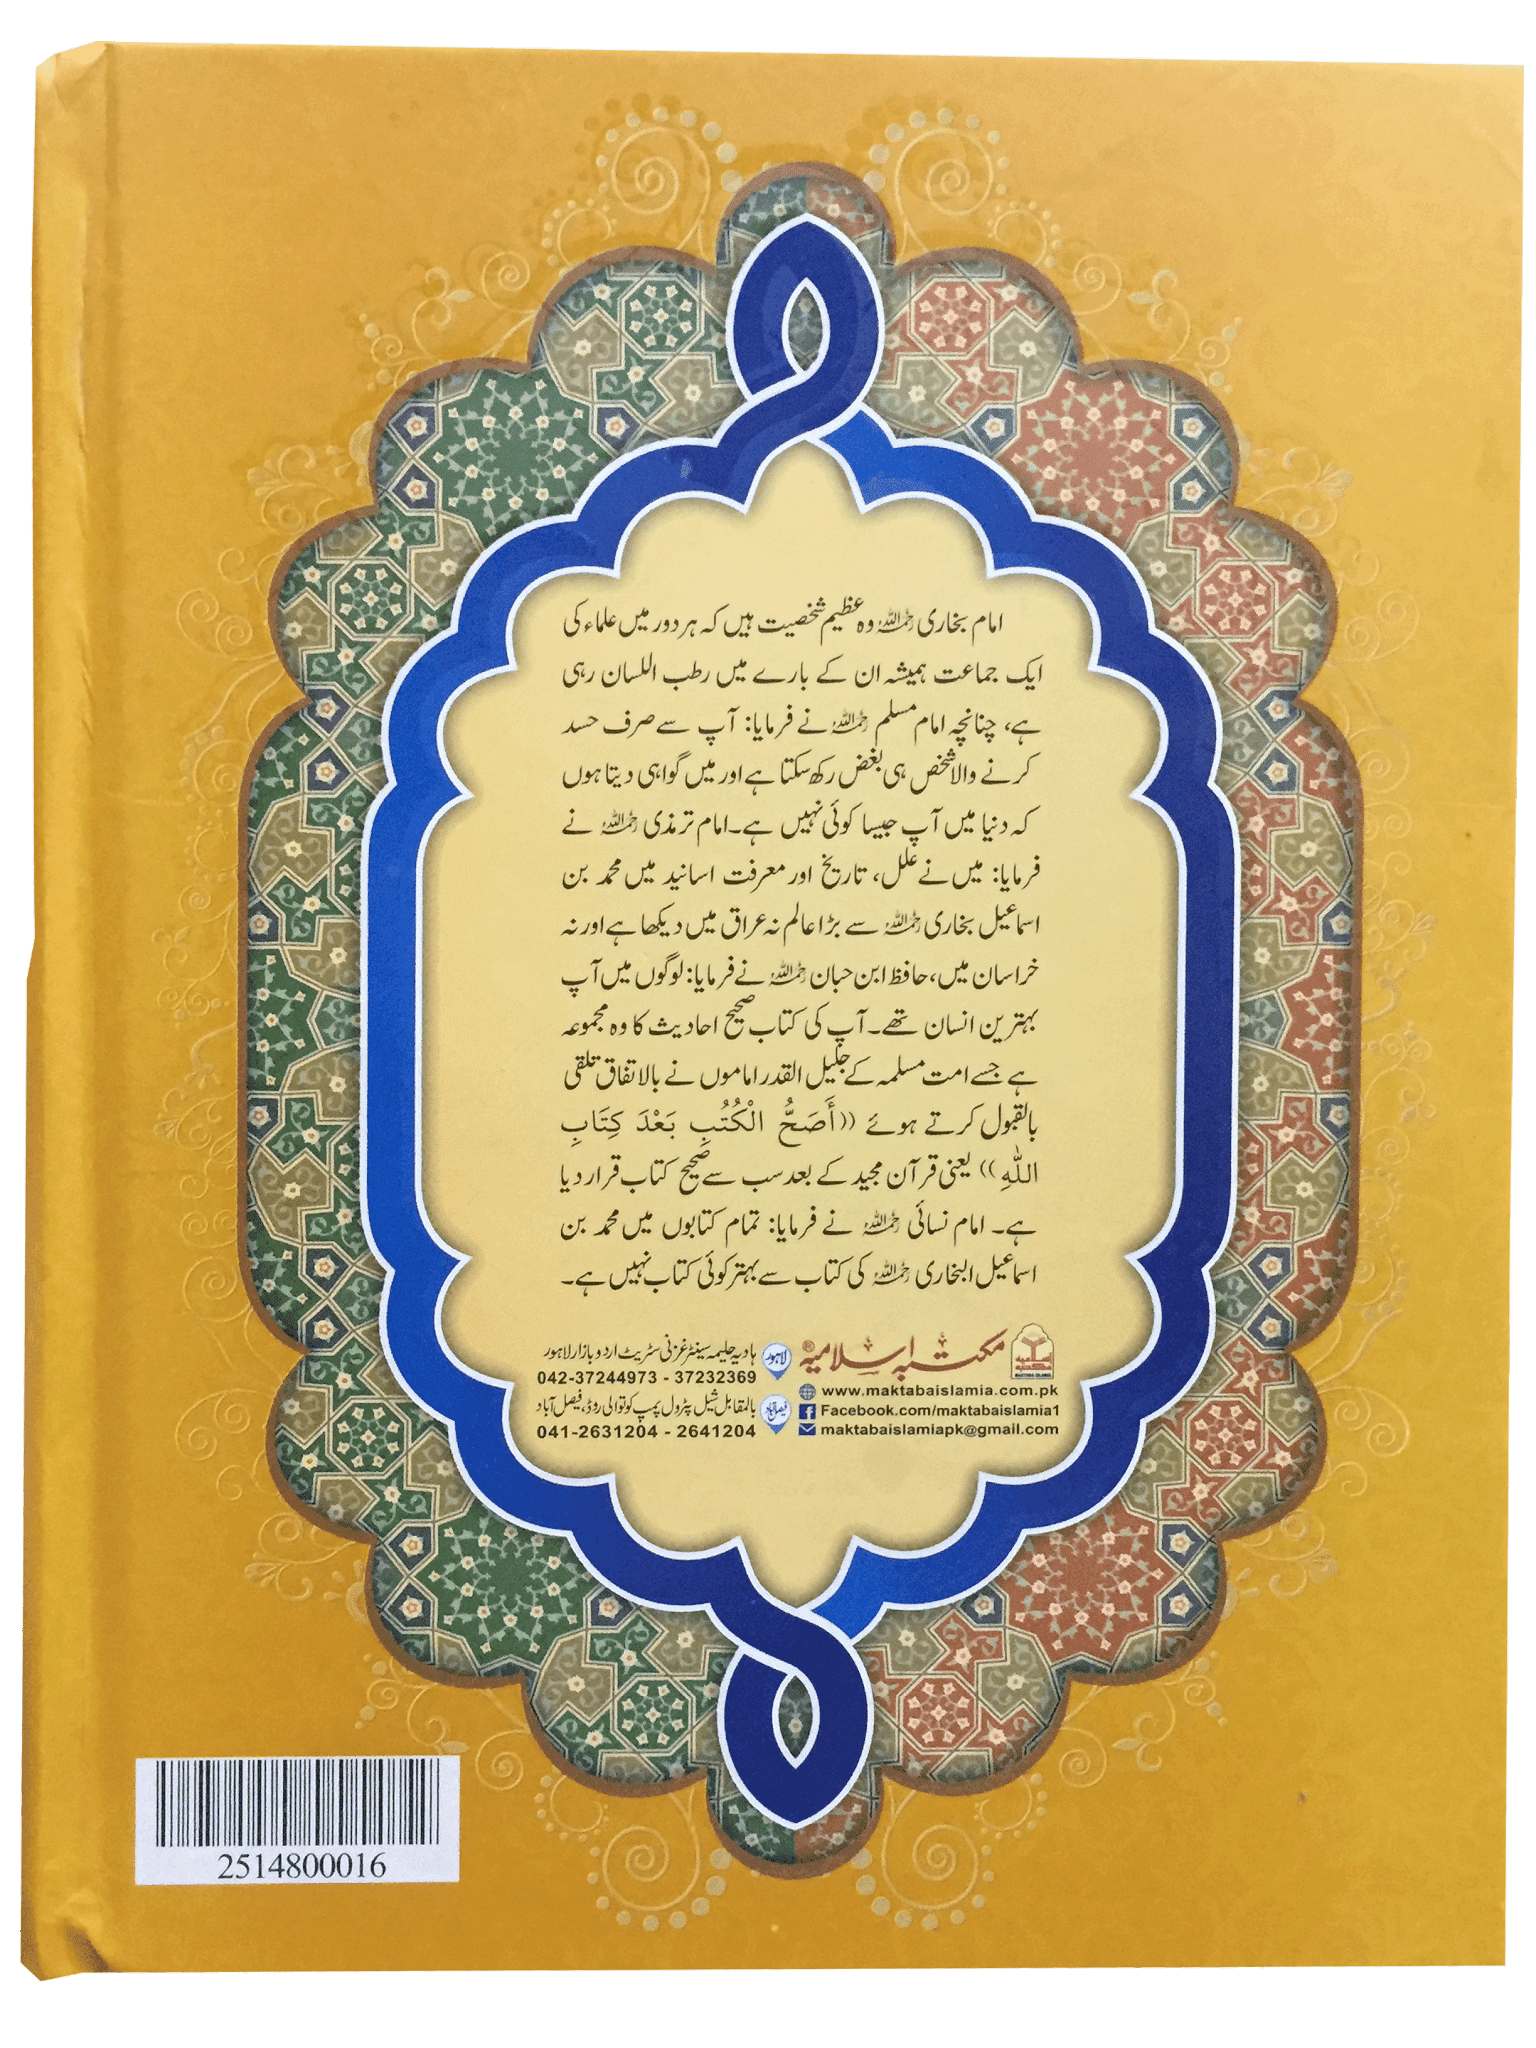 امام بخاری رحمہ اللہ وہ عظیم شخصیت ہیں کہ ہر دور میں علماء کی
ایک جماعت ہمیشہ ان کے بارے میں رطب اللسان رہی
ہے، چنانچہ امام مسلم رحمہ اللہ نے فرمایا: آپ سے صرف حسد
کرنے والا شخص ہی بغض رکھ سکتا ہے اور میں گواہی دیتا ہوں
کہ دنیا میں آپ جیسا کوئی نہیں ہے۔ امام ترمذی رحمہ اللہ نے
فرمایا: میں نے علل، تاریخ اور معرفت اسانید میں محمد بن
اسماعیل بخاری رحمہ اللہ سے بڑا عالم نہ عراق میں دیکھا ہے اور نہ
خراسان میں، حافظ ابن حبان رحمہ اللہ نے فرمایا: لوگوں میں آپ
بہترین انسان تھے۔ آپ کی کتاب صحیح احادیث کا وہ مجموعہ
ہے جسے امت مسلمہ کے جلیل القدر اماموں نے بالاتفاق تلقی
بالقبول کرتے ہوئے ((أَصَحُّ الْكُتُبِ بَعْدَ كِتَابِ
اللّٰهِ)) یعنی قرآن مجید کے بعد سب سے صحیح کتاب قرار دیا
ہے۔ امام نسائی رحمہ اللہ نے فرمایا: تمام کتابوں میں محمد بن
اسماعیل البخاری رحمہ اللہ کی کتاب سے بہتر کوئی کتاب نہیں ہے۔
مکتبہ اسلامیہ®
MAKTABA ISLAMIA
www.maktabaislamia.com.pk
Facebook.com/maktabaislamia1
maktabaislamiapk@gmail.com
لاہور ہادیہ حلیمہ سینٹر غزنی سٹریٹ اردو بازار لاہور
042-37244973 - 37232369
فیصل آباد بالمقابل شیل پٹرول پمپ کوتوالی روڈ، فیصل آباد
041-2631204 - 2641204
2514800016